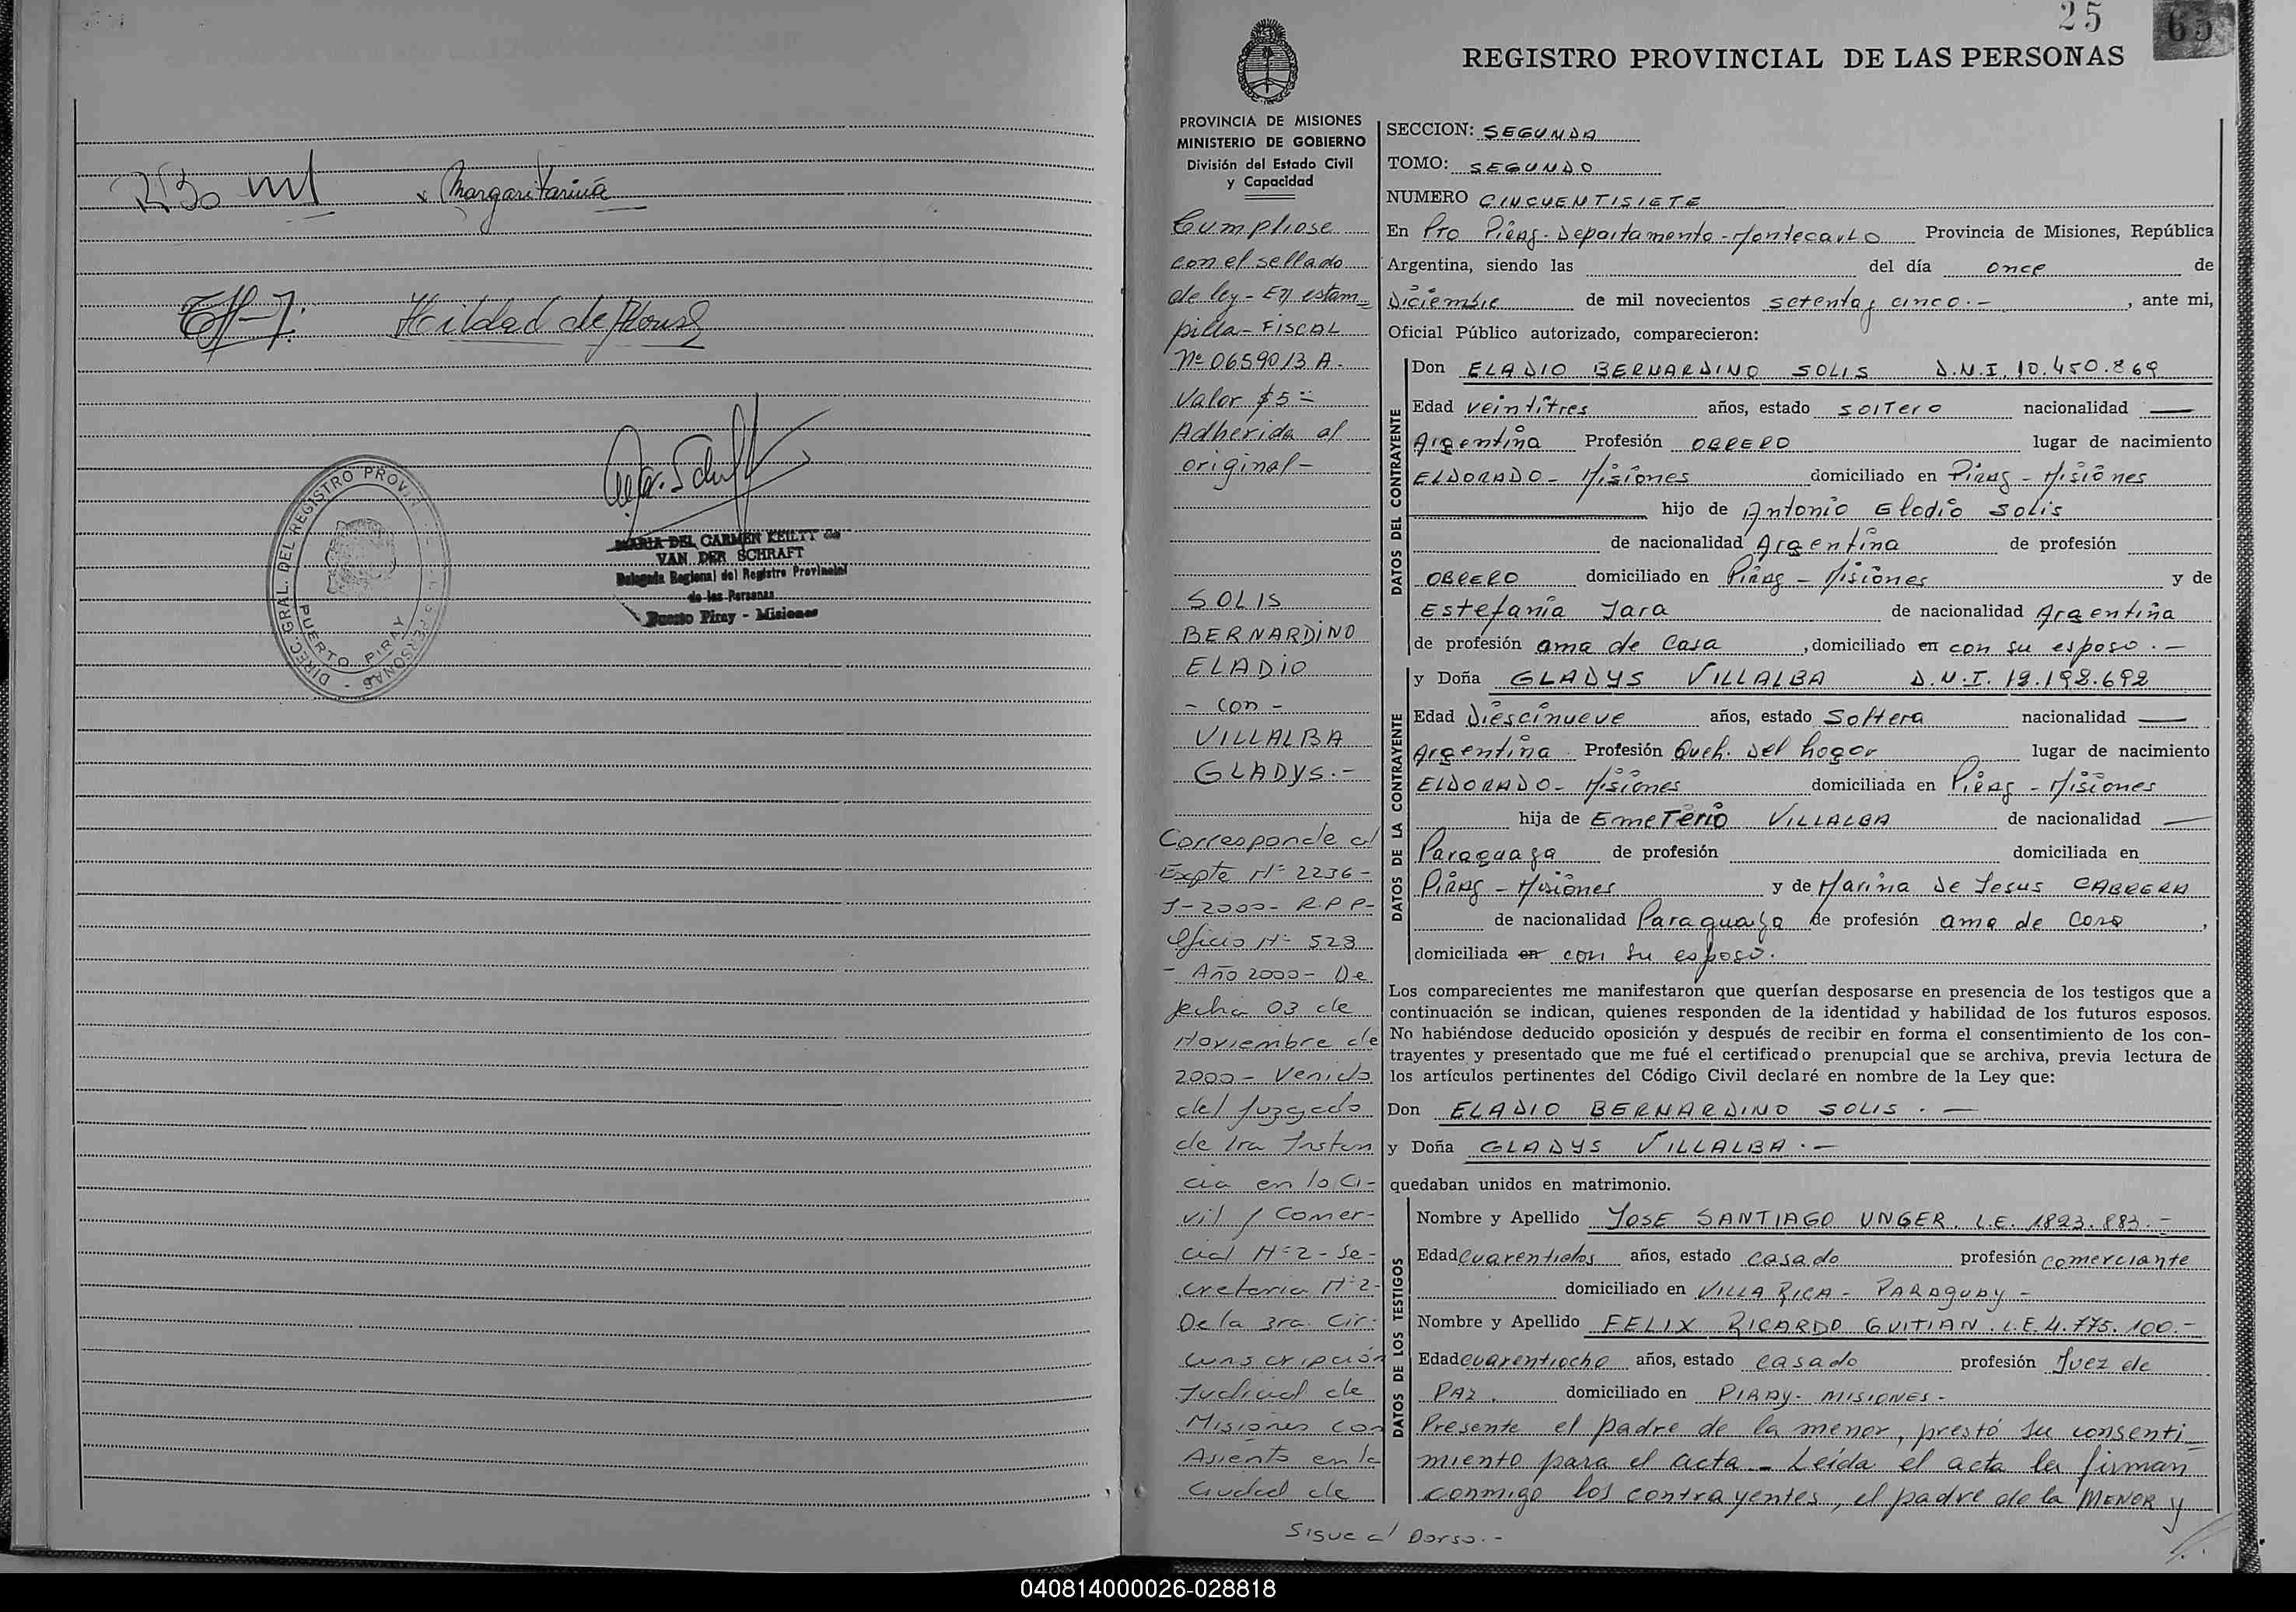 Margaritariña
Hildad de
DIREC. GRAL. DEL REGISTRO PROV
PERSONAS
PUERTO PIRAY
MARIA DEL CARMEN KEILTY de
VAN DER SCHRAFT
Delegada Regional del Registro Provincial
de las Personas
Puerto Piray - Misiones
25
65
REGISTRO PROVINCIAL DE LAS PERSONAS
PROVINCIA DE MISIONES
MINISTERIO DE GOBIERNO
División del Estado Civil
y Capacidad
Cumpliose
con el sellado
de ley - En estam=
pilla - FISCAL
Nº 0659013 A.
Valor $ 5=
Adherida al
original -
SOLIS
BERNARDINO
ELADIO
- con -
VILLALBA
GLADYS.-
Corresponde al
Expte Nº 2236-
J-2000- R.P.P-
Oficio Nº 528
- Año 2000 - De
fecha 03 de
Noviembre de
2000 - Venido
del Juzgado
de 1ra Instan
cia en lo Ci-
vil y Comer-
cial Nº 2 - Se-
cretaria Nº 2-
De la 3ra. Cir-
cunscripción
Judicial de
Misiones con
Asiento en la
Ciudad de
Sigue al Dorso.-
SECCION: SEGUNDA
TOMO: SEGUNDO
NUMERO CINCUENTISIETE
En Pto Piray - Departamento - Montecarlo Provincia de Misiones, República
Argentina, siendo las del día once de
Diciembre de mil novecientos setenta y cinco.- , ante mi,
Oficial Público autorizado, comparecieron:
DATOS DEL CONTRAYENTE
Don ELADIO BERNARDINO SOLIS D.N.I. 10.450.869
Edad veintitres años, estado soltero nacionalidad —
Argentina Profesión OBRERO lugar de nacimiento
ELDORADO - Misiones domiciliado en Piray - Misiones
hijo de Antonio Elodio Solis
de nacionalidad Argentina de profesión
OBRERO domiciliado en Piray - Misiones y de
Estefania Jara de nacionalidad Argentina
de profesión ama de casa , domiciliado en con su esposo.-
DATOS DE LA CONTRAYENTE
y Doña GLADYS VILLALBA D.N.I. 12.198.692
Edad Diescinueve años, estado Soltera nacionalidad —
Argentina Profesión Queh. del hogar lugar de nacimiento
ELDORADO - Misiones domiciliada en Piray - Misiones
hija de Emeterio VILLALBA de nacionalidad —
Paraguaya de profesión domiciliada en
Piray - Misiones y de Marina de Jesus CABRERA
de nacionalidad Paraguaya de profesión ama de casa ,
domiciliada en con su esposo.
Los comparecientes me manifestaron que querían desposarse en presencia de los testigos que a
continuación se indican, quienes responden de la identidad y habilidad de los futuros esposos.
No habiéndose deducido oposición y después de recibir en forma el consentimiento de los con-
trayentes y presentado que me fué el certificado prenupcial que se archiva, previa lectura de
los artículos pertinentes del Código Civil declaré en nombre de la Ley que:
Don ELADIO BERNARDINO SOLIS.-
y Doña GLADYS VILLALBA.-
quedaban unidos en matrimonio.
DATOS DE LOS TESTIGOS
Nombre y Apellido JOSE SANTIAGO UNGER. L.E. 1823.883.-
Edad cuarentidos años, estado casado profesión comerciante
domiciliado en VILLA RICA - PARAGUAY -
Nombre y Apellido FELIX RICARDO GUITIAN. L.E. 4.775.100.-
Edad cuarentiocho años, estado casado profesión Juez de
PAZ. domiciliado en PIRAY - MISIONES -
Presente el padre de la menor, prestó su consenti-
miento para el acta - Leída el acta la firman
conmigo los contrayentes, el padre de la MENOR y
040814000026-028818